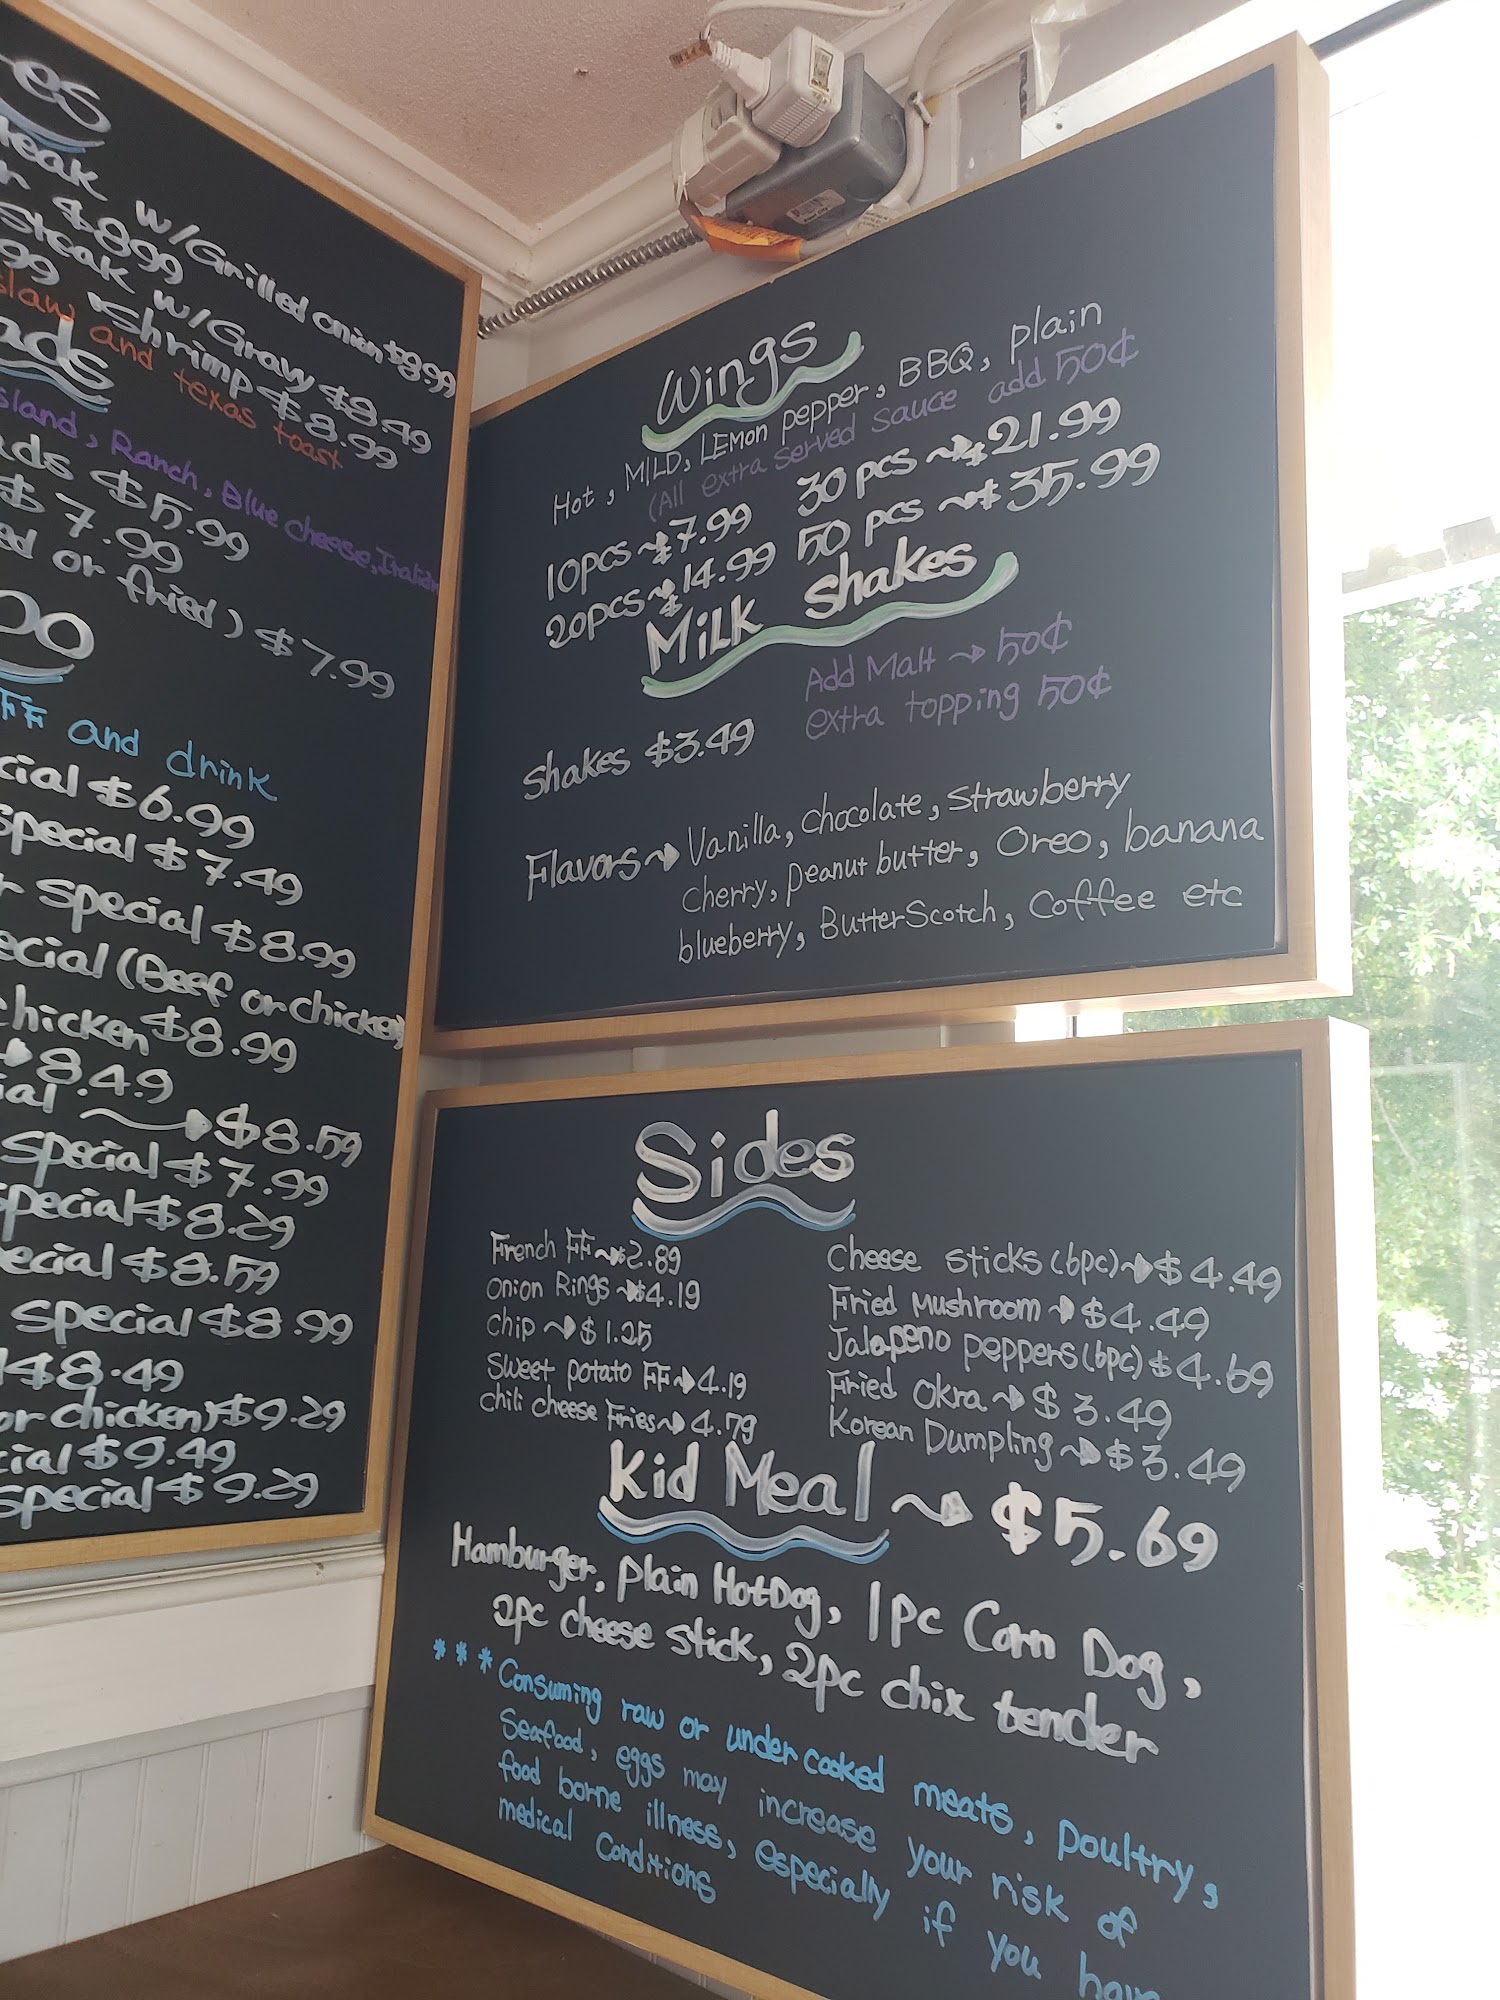 es
teak w/Grilled onion $8.99
r $8.99
Steak w/Gravy $8.49
99 Shrimp $8.99
slaw and texas toast
ads
sland, Ranch, Blue cheese, Italian
ads $5.99
$7.99
ed or fried) $7.99
oo
FF and drink
cial $6.99
special $7.49
r special $8.99
ecial (Beef or chicken)
chicken $8.99
8.49
ial $8.59
special $7.99
special $8.29
ecial $8.59
special $8.99
$8.49
or chicken) $9.29
cial $9.49
special $9.29
Wings
Hot, MILD, LEmon pepper, BBQ, plain
(All extra served sauce add 50¢
10pcs $7.99 30 pcs $21.99
20pcs $14.99 50 pcs $35.99
Milk shakes
Add Malt 50¢
extra topping 50¢
shakes $3.49
Flavors Vanilla, chocolate, strawberry
cherry, peanut butter, Oreo, banana
blueberry, ButterScotch, Coffee etc
Sides
French FF $2.89
onion Rings $4.19
chip $1.25
sweet potato FF 4.19
chili cheese Fries 4.79
Cheese sticks (6pc) $4.49
Fried Mushroom $4.49
Jalapeno peppers (6pc) $4.69
Fried Okra $3.49
Korean Dumpling $3.49
Kid Meal $5.69
Hamburger, plain HotDog, 1pc Corn Dog,
2pc cheese stick, 2pc chix tender
*** Consuming raw or under cooked meats, poultry,
Seafood, eggs may increase your risk of
food borne illness, especially if you have
medical Conditions